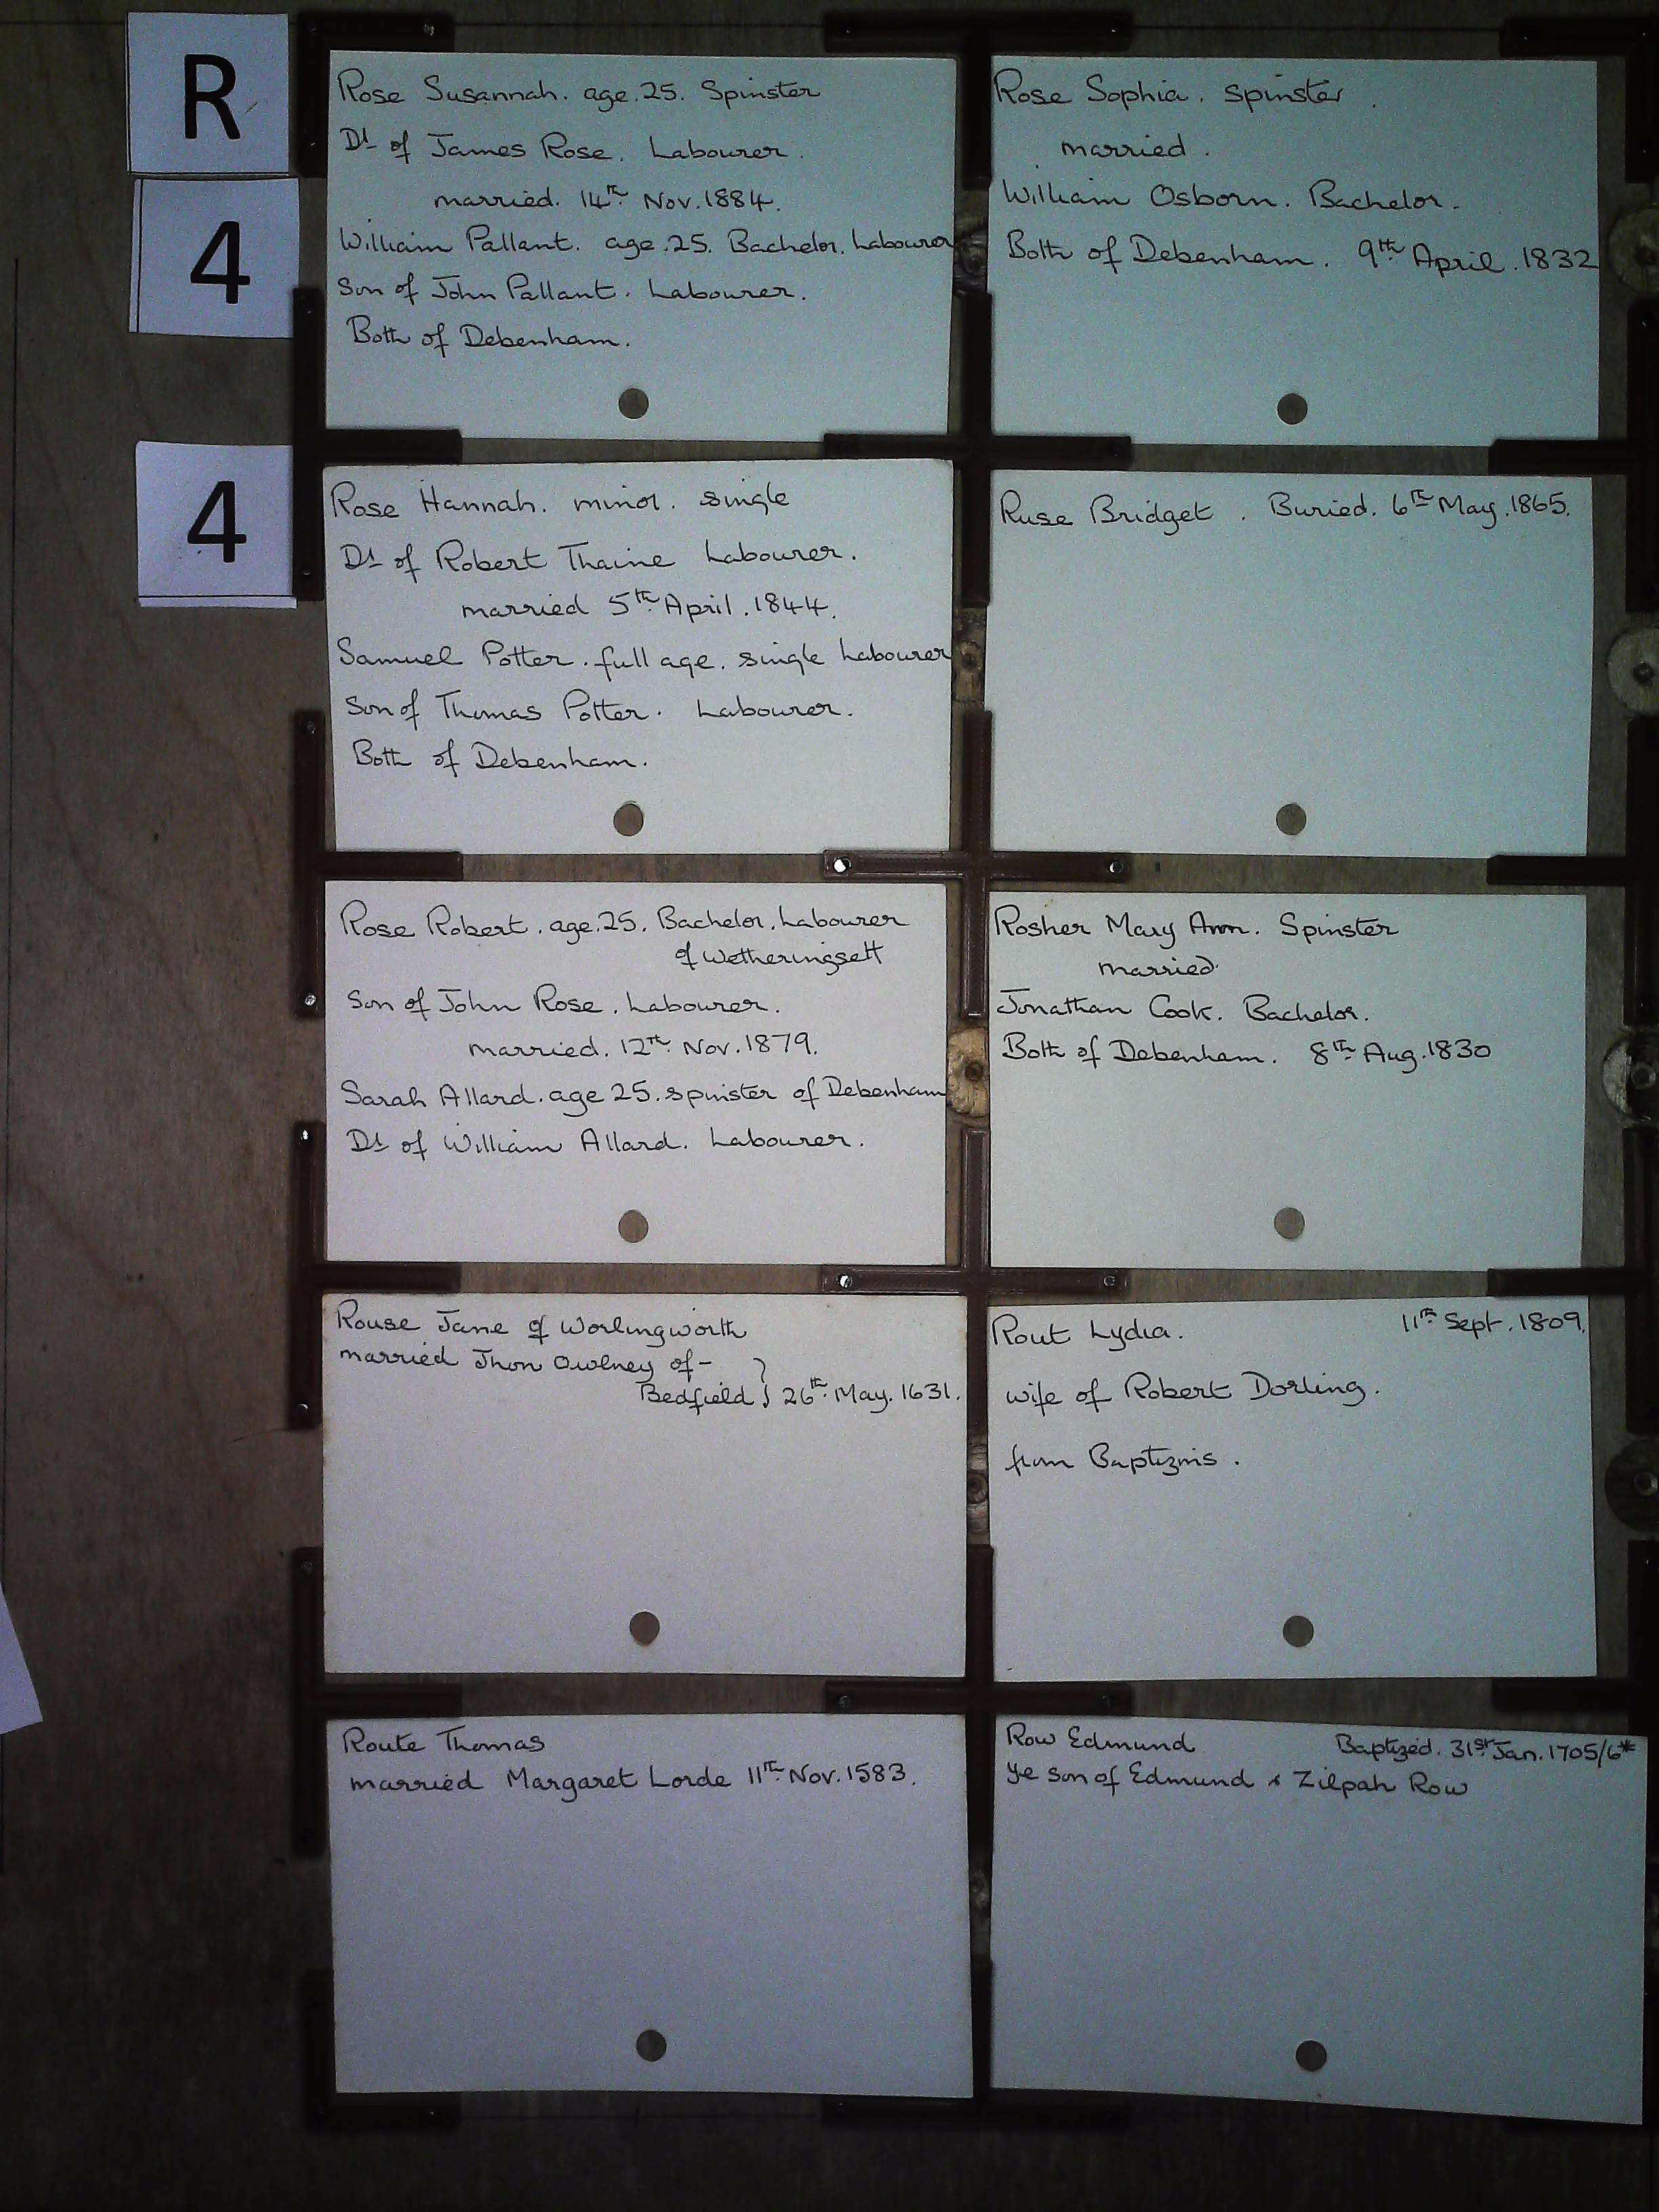 R
4
4
Rose Susannah. age. 25. Spinster
Dt of James Rose. Labourer.
married. 14th Nov. 1884.
William Pallant. age. 25. Bachelor. Labourer
Son of John Pallant. Labourer.
Both of Debenham.
Rose Sophia. Spinster.
married.
William Osborn. Bachelor.
Both of Debenham. 9th April. 1832
Rose Hannah. minor. single
Dt of Robert Thaine Labourer.
married 5th April. 1844.
Samuel Potter. full age. single Labourer
Son of Thomas Potter. Labourer.
Both of Debenham.
Ruse Bridget. Buried. 6th May. 1865.
Rose Robert. age. 25. Bachelor. Labourer
of Wetheringsett
Son of John Rose. Labourer.
married. 12th Nov. 1879.
Sarah Allard. age 25. spinster of Debenham
Dt of William Allard. Labourer.
Rosher Mary Ann. Spinster
married.
Jonathan Cook. Bachelor.
Both of Debenham. 8th Aug. 1830
Rouse Jane of Worlingworth
married Jhon Owlney of -
Bedfield } 26th May. 1631.
Rout Lydia. 11th Sept. 1809.
wife of Robert Dorling.
from Baptizms.
Route Thomas
married Margaret Lorde 11th Nov. 1583.
Row Edmund Baptized. 31st Jan. 1705/6*
Ye son of Edmund & Zilpah Row